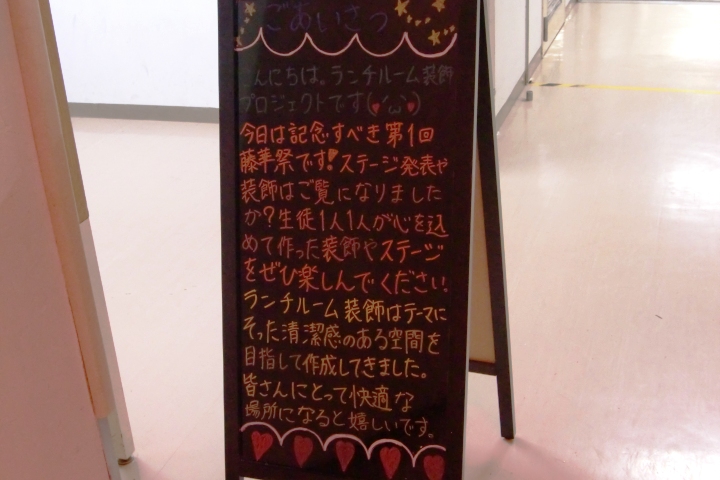 ごあいさつ
こんにちは。ランチルーム装飾
プロジェクトです(♥'ω'♥)
今日は記念すべき第1回
藤華祭です!ステージ発表や
装飾はご覧になりました
か?生徒1人1人が心を込
めて作った装飾やステージ
をぜひ楽しんでください
ランチルーム装飾はテーマに
そった清潔感のある空間を
目指して作成してきました。
皆さんにとって快適な
場所になると嬉しいです。